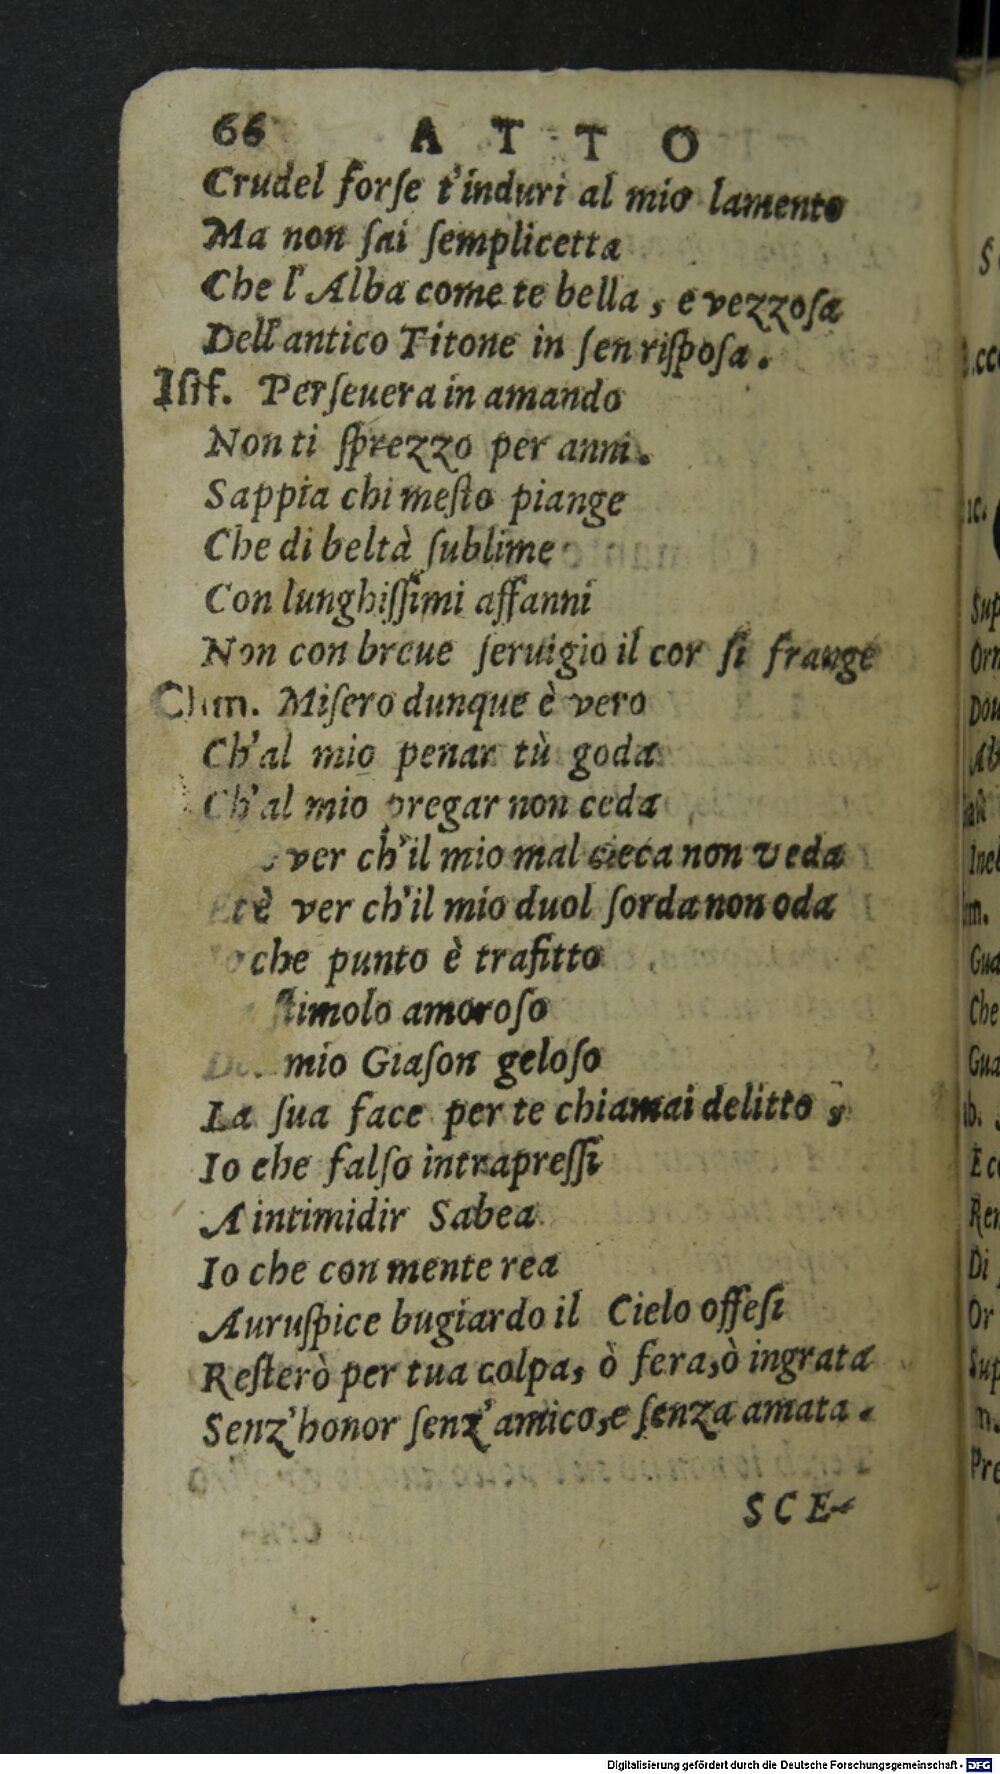 66 ATTO
Crudel forſe t'induri al mio lamento
Ma non ſai ſemplicetta
Che l'Alba come te bella, e vezzoſa
Dell'antico Titone in ſen riſpoſa.
Iſif. Perſeuera in amando
Non ti ſprezzo per anni.
Sappia chi meſto piange
Che di beltà ſublime
Con lunghiſſimi affanni
Non con breue ſeruigio il cor ſi frange
Clim. Miſero dunque è vero
Ch'al mio penar tù goda
Ch'al mio pregar non ceda
ver ch'il mio mal cieca non veda
Et è ver ch'il mio duol ſorda non oda
Io che punto è trafitto
ſtimolo amoroſo
mio Giaſon geloſo
La ſua face per te chiamai delitto,
Io che falſo intrapreſſi
A intimidir Sabea
Io che con mente rea
Auruſpice bugiardo il Cielo offeſi
Reſterò per tua colpa, ò fera, ò ingrata
Senz'honor ſenz'amico, e ſenza amata.
SCE-
Digitalisierung gefördert durch die Deutsche Forschungsgemeinschaft - DFG